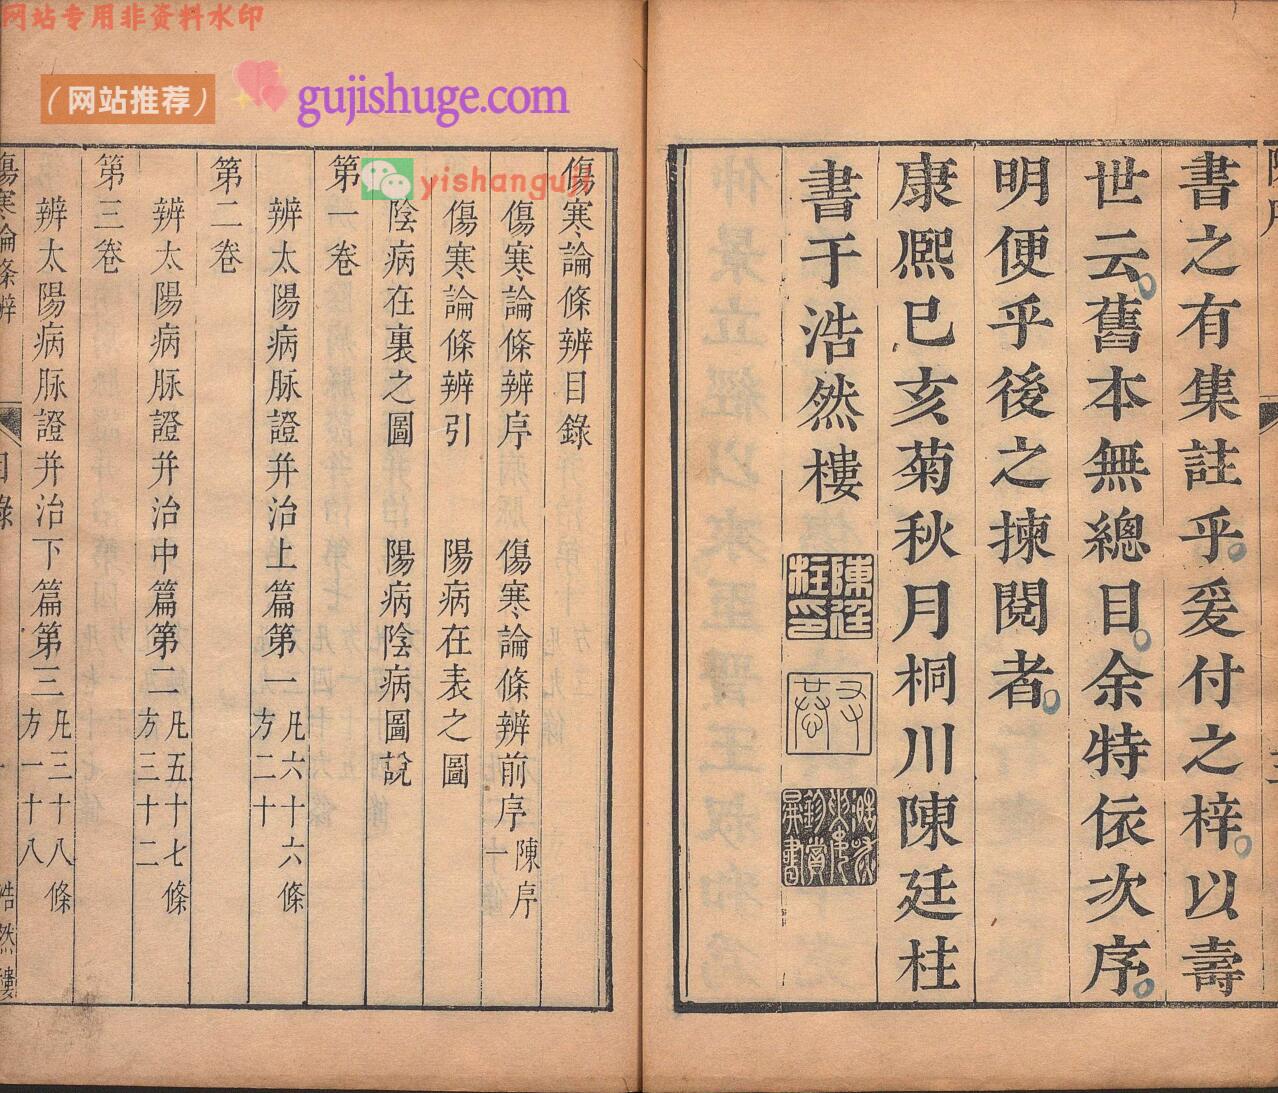 网站专用非资料水印
(网站推荐)
gujishuge.com
yishanguji
書之有集註乎爰付之梓以壽
世云舊本無總目余特依次序
明便乎後之揀閱者
康熈已亥菊秋月桐川陳廷柱
書于浩然樓
陳廷
柱印
傷寒論條辨目錄
傷寒論條辨序
傷寒論條辨前序
陳序
傷寒論條辨引
陽病在表之圖
陰病在裏之圖
陽病陰病圖說
第一卷
辨太陽病脉證并治上篇第一
凡六十六條
方二十
第二卷
辨太陽病脉證并治中篇第二
凡五十七條
方三十二
第三卷
辨太陽病脉證并治下篇第三
凡三十八條
方一十八
傷寒論條辨
目錄
浩然樓